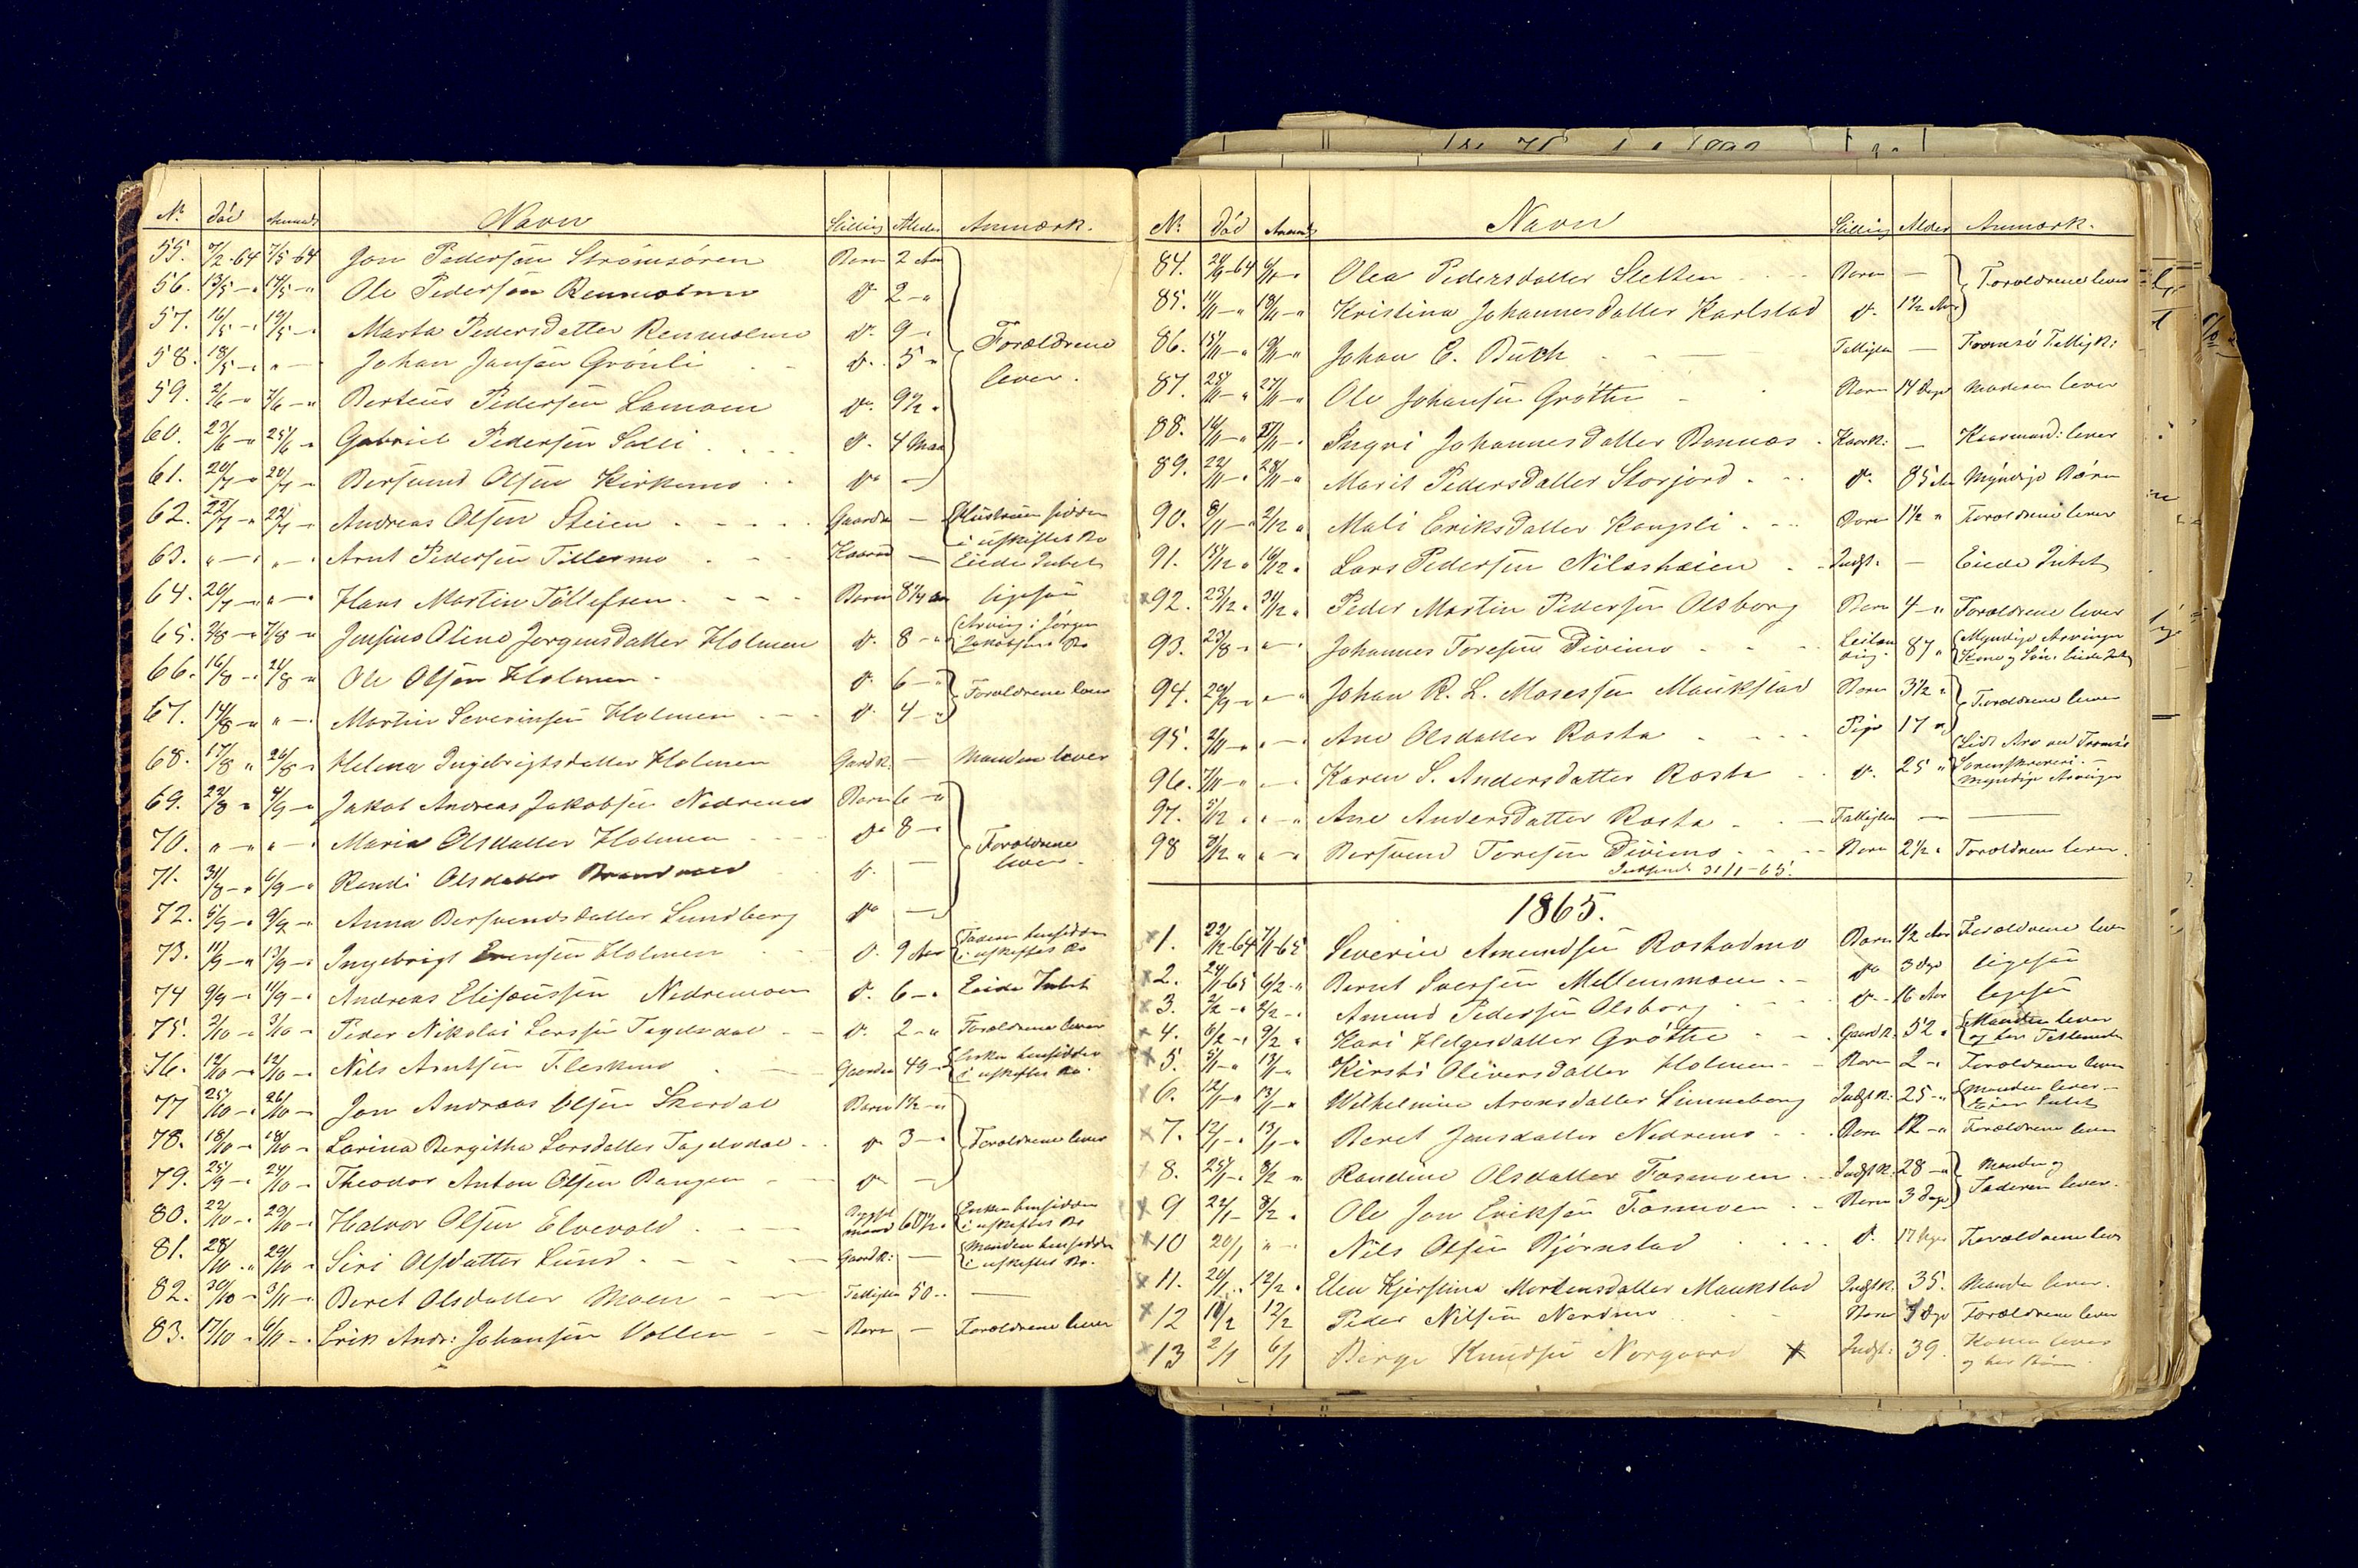 No Död Anmeldt Navn Stilling Alder Anmærk.
55. 7/2-64 7/5-64 Jon Pedersøn Strömsören Barn 2 Aar
56. 13/5 - " 14/5 - " Ole Pedersøn Rennmolmo do 2 - "
57. 16/5 - " 19/5 - " Marta Pedersdatter Rennmolmo do 9 - " Forældrene
58. 18/5 - " " - Johan Jonsøn Grönli do 5 - " lever.
59. 2/6 - " 7/6 - " Berteus Pedersøn Lamoen do 9 1/2 "
60. 23/6 - " 25/6 - " Gabriel Pedersøn Solli do 4 Maa
61. 20/7 - " 20/7 - " Bersvend Olsøn Kirkemo do -
62. 22/7 - " 22/7 - " Andreas Olsen Steien Gaardm - Hustruen sidder i uskiftet Bo
63. " - " " - " Arnt Pedersøn Tillermo Kaarm - Eiede Intet
64. 20/7 - " " - " Hans Martin Töllefsen Barn 8 1/4 Aar ligesaa
65. 2/8 - " 7/8 - " Jensine Oline Jørgensdatter Holmen do 8 - " Arving i Jørgen Jakobsens Bo
66. 16/8 - " 21/8 - " Ole Olsøn Holmen do 6 - " Forældrene lever
67. 14/8 - " " - " Martin Severinsen Holmen do 4 - "
68. 17/8 " 26/8 - " Helena Ingebrigtsdatter Holmen Gaardk: - Manden lever
69. 22/8 " 4/9 - " Jakob Andreas Jakobsen Nedremo Barn 6 - "
70. " - " " - " Maria Olsdatter Holmen do 8 - " Forældrene
71. 31/8 - " 6/9 - " Randi Olsdatter Brandmo do - lever.
72. 5/9 - " 9/9 - " Anna Bersvendsdatter Lundberg do -
73. 11/9 - " 13/9 - " Ingebrigt Evensen Holmen do 9 Aar Faderen hensidder i uskiftet Bo
74 9/9 - " 11/9 - " Andreas Elisæussen Nedremoen do 6 - " Eiede Intet
75. 2/10 - " 3/10 - " Peder Nikolai Larssen Fagelvdal do 2 - " Forældrene lever
76. 12/10 - " 12/10 - " Nils Arntsen Fleskmo Gaardm 49 - " Enken hensidder i uskiftet Bo.
77 25/10 - " 26/10 - " Jon Andreas Olsen Skardal Barn 1 1/2 - "
78. 18/10 - " 18/10 - " Larina Bergitha Larsdatter Fagelvdal do 3 - " Forældrene lever
79. 25/9 - " 24/10 - " Theodor Anton Olsen Rangen do -
80. 22/10 - " 29/10 - " Halvor Olsen Elvevold mand 60 1/2 " Enken hensidder i uskiftet Bo
81. 28/10 - " 29/10 - " Siri Olsdatter Lund Gaardk: - Manden hensidder i uskiftet Bo.
82. 30/10 - " 3/11 - " Beret Olsdatter Moen Fattiglem 50 - " -
83. 17/10 - " 6/11 - " Erik Andr: Johansen Vollen Barn - Forældrene lever
No Död Anmeldt Navn Stilling Alder Anmærk.
84. 24/9-64 6/11 - " Olea Pedersdatter Sletten Barn - Forældrene lever
85. 11/11 - " 13/11 - " Kristina Johannesdatter Karlstad do 1 1/2 Aar
86. 15/11 - " 19/11 - " Johan C. Buch Fattiglem - Tromsö Fattigk:
87. 25/11 - " 27/11 - " Ole Johansen Grötte Barn 14 Dage Moderen lever
88. 16/11 - " 27/11 - " Ingri Johannesdatter Bonnes Kaark: - Kaarmand: lever
89. 22/11 - " 28/11 - " Marit Pedersdatter Storjord do 85 Aar Myndige Börn
90. 8/11 - " 2/12 " Mali Eriksdatter Kongsli Barn 1 1/2 " Forældrene lever
91. 15/12 " 16/12 " Lars Pedersen Nilasheien Indst. - Eiede Intet
x92. 23/12 " 31/12 " Peder Martin Pedersen Olsborg Barn 4 - " Forældrene lever
93. 23/8 - " " - " Johannes Toresen Divimo Leilænding 87 " Myndige Arvinger Kone og Sön. Eiede Intet
94. 29/9 - " " - " Johan R. L. Mosessen Moukstad Barn 3 1/2 " Forældrene lever
95. 2/11 - " " - " Ane Olsdatter Rosta Pige 17 "
96. 7/11 - " " - " Karen S. Andersdatter Rosta do 25 " Lidt Arv ved Tromsö Sorenskriveri. - Myndige Arvinger
97. 5/12 " " - " Ane Andersdatter Rosta Fattiglem - -
98 9/12 " " - " Bersvend Toresen Divimo Barn 2 1/2 " Forældrene lever.
Indsendt 31/1-65.
1865.
x1. 22/12-64 7/1-65 Severin Amundsen Rostadmo Barn 1/2 Aar Forældrene lever
x2. 24/1-65 6/2 - " Bernt Iversen Mellemmoen do 3 Dge ligesaa
x3. 2/2 - " 2/2 - " Amund Pedersen Olsborg do 16 Aar ligesaa
x4. 6/2 - " 9/2 " Kari Helgesdatter Grötte Gaardk: 52 " Manden lever og har Testamente
x5. 5/1 - " 13/1 - " Kirsti Oliversdatter Holmen Barn 2 - " Forældrene lever
x6. 12/1 - " 13/1 - " Wilhelmine Aronsdatter Linneberg Indstk: 25 - " Manden lever - Eier Intet
x7. 12/1 - " 13/1 - " Beret Jonsdatter Nedremo Barn 12 - " Forældrene lever
x8. 25/1 - " 8/2 " Randine Olsdatter Fosmoen Indstk: 28 - " Manden og
x9 24/1 - 8/2 " Ole Jon Eriksen Fosmoen Barn 3 Dage Faderen lever.
x10 20/1 " - " Nils Olsen Bjørnstad do 17 Dage Forældrene lever
x11. 24/1 " 12/2 " Elen Kjerstina Mortensdatter Moukstad Indstk. 35. Manden lever.
x12 10/2 12/2 Peder Nilsen Nordmo Barn Dge Forældrene lever
x13 2/1 6/1 Birge Knudsen Norgaard x Indst: 39. Konen lever og har Börn.